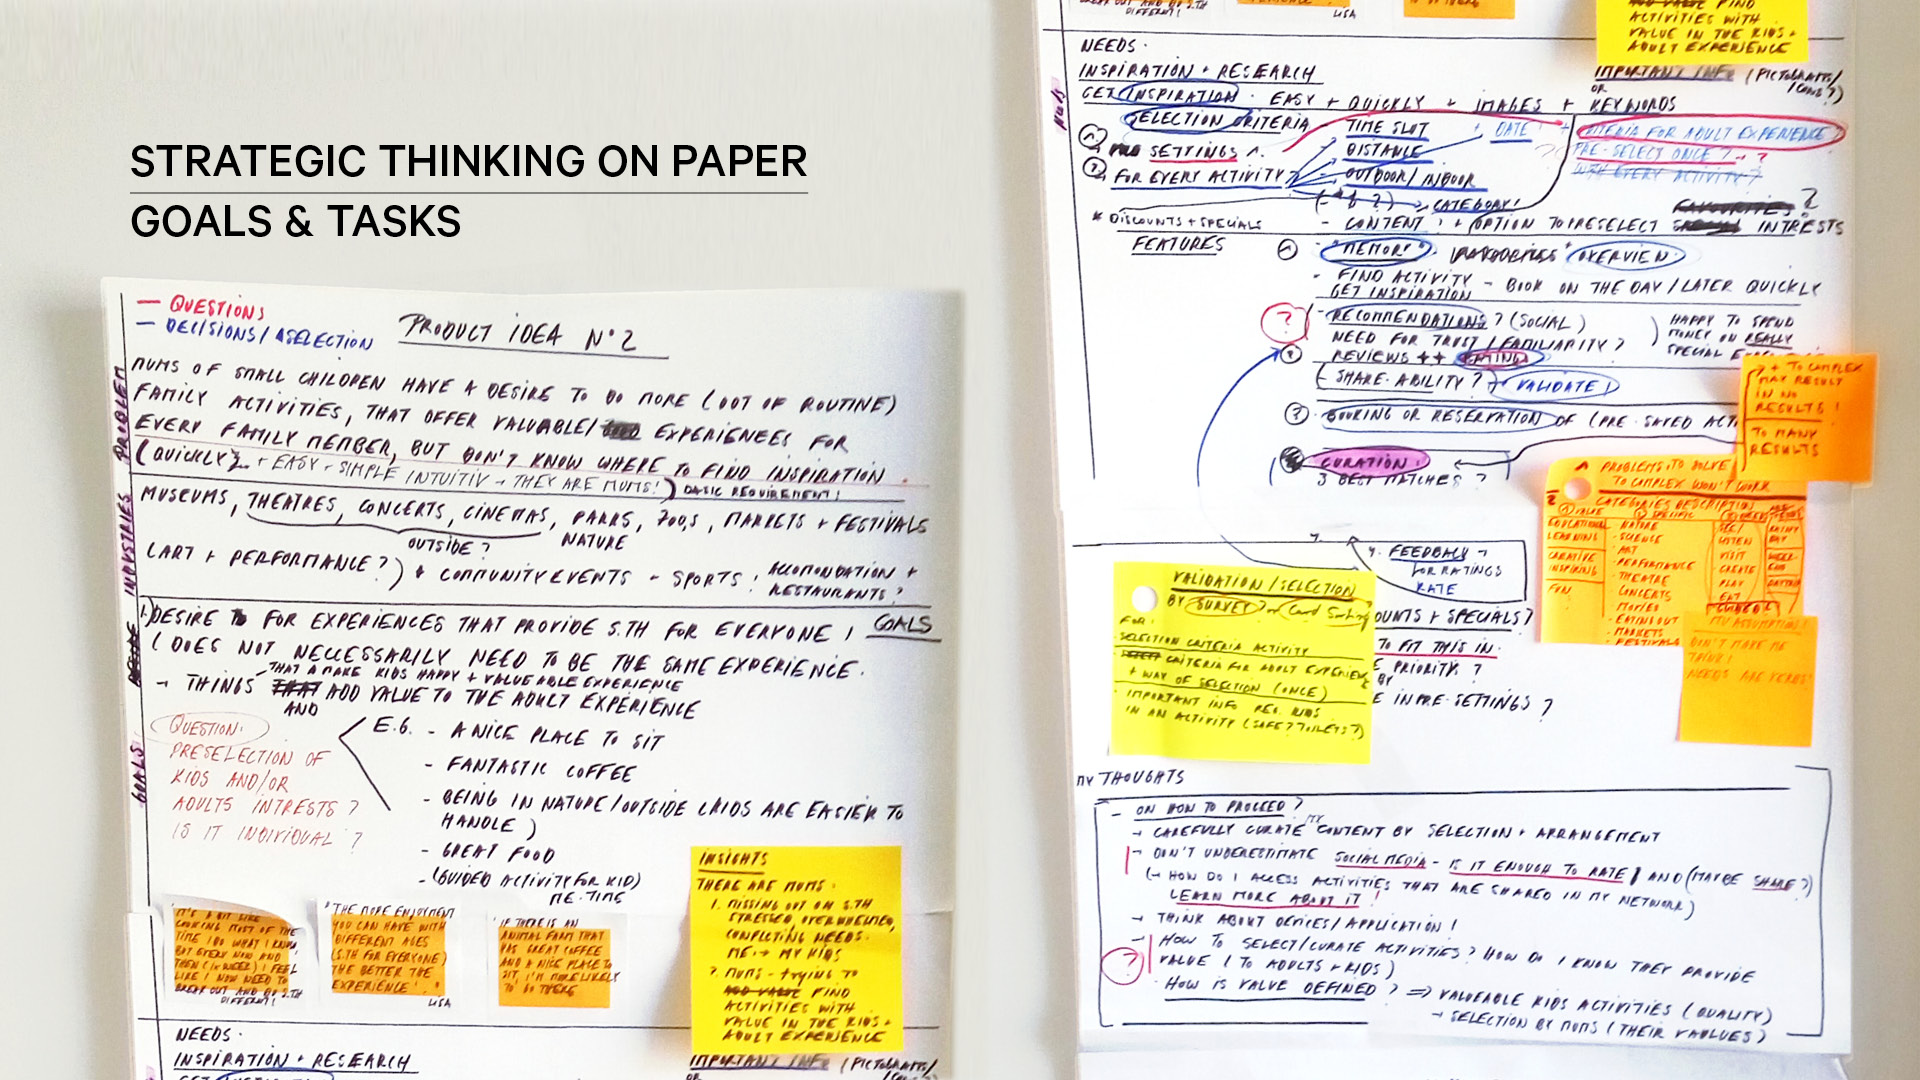 STRATEGIC THINKING ON PAPER
GOALS & TASKS
— QUESTIONS
— DECISIONS/ASELECTION
PRODUCT IDEA N°2
PROBLEM
MUMS OF SMALL CHILDREN HAVE A DESIRE TO DO MORE (OUT OF ROUTINE)
FAMILY ACTIVITIES, THAT OFFER VALUABLE/ EXPERIENCES FOR
EVERY FAMILY MEMBER, BUT DON'T KNOW WHERE TO FIND INSPIRATION.
(QUICKLY) + EASY + SIMPLE INTUITIV → THEY ARE MUMS!) BASIC REQUIREMENT!
INDUSTRIES
MUSEUMS, THEATRES, CONCERTS, CINEMAS, PARKS, ZOO,S, MARKETS + FESTIVALS
OUTSIDE? NATURE
(ART + PERFORMANCE?) + COMMUNITY EVENTS - SPORTS, ACCOMONDATION +
RESTAURANTS?
1.) DESIRE FOR EXPERIENCES THAT PROVIDE S.TH FOR EVERYONE! GOALS
(DOES NOT NECESSARILY NEED TO BE THE SAME EXPERIENCE.
THAT MAKE KIDS HAPPY + VALUEABLE EXPERIENCE
→ THINGS THAT ADD VALUE TO THE ADULT EXPERIENCE
AND
GOALS
QUESTION:
PRESELECTION OF
KIDS AND/OR
ADULTS INTRESTS?
IS IT INDIVIDUAL?
E.G. - A NICE PLACE TO SIT
- FANTASTIC COFFEE
- BEING IN NATURE/OUTSIDE (KIDS ARE EASIER TO
HANDLE)
- GREAT FOOD
- (GUIDED ACTIVITY FOR KID)
ME-TIME
IT'S A BIT LIKE
COOKING MOST OF THE
TIME I DO WHAT I KNOW
BUT EVERY NOW AND
THEN (1x WEEK) I FEEL
LIKE I NOW NEED TO
BREAK OUT AND DO S.TH
DIFFERENT!
"THE MORE ENJOYMENT
YOU CAN HAVE WITH
DIFFERENT AGES
(S.TH FOR EVERYONE)
THE BETTER THE
EXPERIENCE".
LISA
IF THERE IS AN
ANIMAL FARM THAT
HAS GREAT COFFEE
AND A NICE PLACE TO
SIT, I'M MORE LIKELY
TO GO THERE
INSIGHTS
THERE ARE MUMS:
1. MISSING OUT ON S.TH
STRESSED, OVERWHELMED,
CONFLICTING NEEDS.
ME → MY KIDS
2. MUMS - trying TO
ADD VALUE FIND
ACTIVITIES WITH
VALUE IN THE KIDS +
ADULT EXPERIENCE
NEEDS.
INSPIRATION + RESEARCH
IMPORTANT INFO (PICTOGRAMS/
OR
DIFFERENT!
LISA
ADD VALUE FIND
ACTIVITIES WITH
VALUE IN THE KIDS +
ADULT EXPERIENCE
NEEDS.
INSPIRATION + RESEARCH
IMPORTANT INFO (PICTOGRAMS/
OR /ICONS?)
GET INSPIRATION. EASY + QUICKLY + IMAGES + KEYWORDS
SELECTION CRITERIA
TIME SLOT + DATE + CRITERIA FOR ADULT EXPERIENCE?
① SETTINGS 1.
DISTANCE
PRE-SELECT ONCE? → ?
② FOR EVERY ACTIVITY
- OUTDOOR/INDOOR
WITH EVERY ACTIVITY?
CATEGORY!
* DISCOUNTS + SPECIALS
- CONTENT! + OPTION TO PRESELECT INTRESTS
FAVOURITES ?
FEATURES
① - "MEMORY" OVERVIEW
- FIND ACTIVITY - BOOK ON THE DAY/LATER QUICKLY
GET INSPIRATION
? - RECOMMENDATIONS? (SOCIAL)
NEED FOR TRUST/FAMILIARITY?
HAPPY TO SPEND
MONEY ON REALLY
SPECIAL
② REVIEWS ++ RATING
(SHARE-ABILITY? → VALIDATE!)
③ BOOKING OR RESERVATION OF (PRE-SAVED
CURATION!
3 BEST MATCHES?
→ + TO COMPLEX
MAY RESULT
IN NO
RESULTS!
TO MANY
RESULTS
PROBLEMS TO SOLVE
TO COMPLEX WON'T WORK
CATEGORIES DESCRIPTION
① VALUE
② SPECIFIC
EDUCATIONAL
LEARNING
CREATIVE
INSPIRING
FUN
- NATURE
- SCIENCE
- ART
- PERFORMANCE
- THEATRE
- CONCERTS
- MOVIES
- EATING OUT
- MARKETS
- FESTIVALS
SEE/
LISTEN
VISIT
CREATE
PLAY
EAT
RAINY
DAY
WEEK-
END
MY ASSUMPTION!
DON'T MAKE ME
THINK!
NEEDS ARE VERBS!
4. FEEDBACK →
FOR RATINGS
RATE
VALIDATION/SELECTION
BY SURVEY? or Card Sorting
FOR:
- SELECTION CRITERIA ACTIVITY
CRITERIA FOR ADULT EXPERIENCE
+ WAY OF SELECTION (ONCE)
- IMPORTANT INFO REG. KIDS
IN AN ACTIVITY (SAFE? TOILETS?)
OUNTS + SPECIALS?
TO FIT THIS IN.
PRIORITY?
BY
E IN PRE-SETTINGS?
MY THOUGHTS
- ON HOW TO PROCEED?
→ CAREFULLY CURATE MY CONTENT BY SELECTION + ARRANGEMENT
→ DON'T UNDERESTIMATE SOCIAL MEDIA - IS IT ENOUGH TO RATE! AND (MAYBE SHARE?)
(→ HOW DO I ACCESS ACTIVITIES THAT ARE SHARED IN MY NETWORK)
LEARN MORE ABOUT IT!
→ THINK ABOUT DEVICES/APPLICATION!
→ HOW TO SELECT/CURATE ACTIVITIES? HOW DO I KNOW THEY PROVIDE
? VALUE (TO ADULTS + KIDS)
- HOW IS VALUE DEFINED? ⇒ VALUEABLE KIDS ACTIVITIES (QUALITY)
→ SELECTION BY MUMS (THEIR VAULUES)